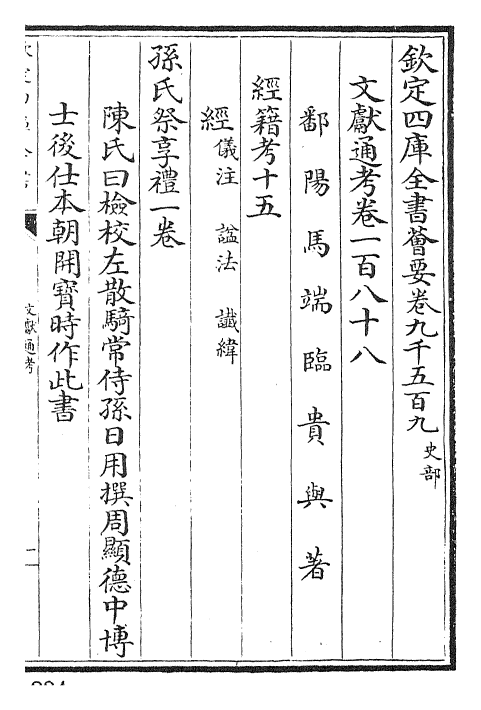 欽定四庫全書薈要卷九千五百九 史部
文獻通考卷一百八十八
鄱陽馬端臨貴與著
經籍考十五
經 儀注 諡法 讖緯
孫氏祭享禮一卷
陳氏曰檢校左散騎常侍孫日用撰周顯德中博
士後仕本朝開寶時作此書
文獻通考